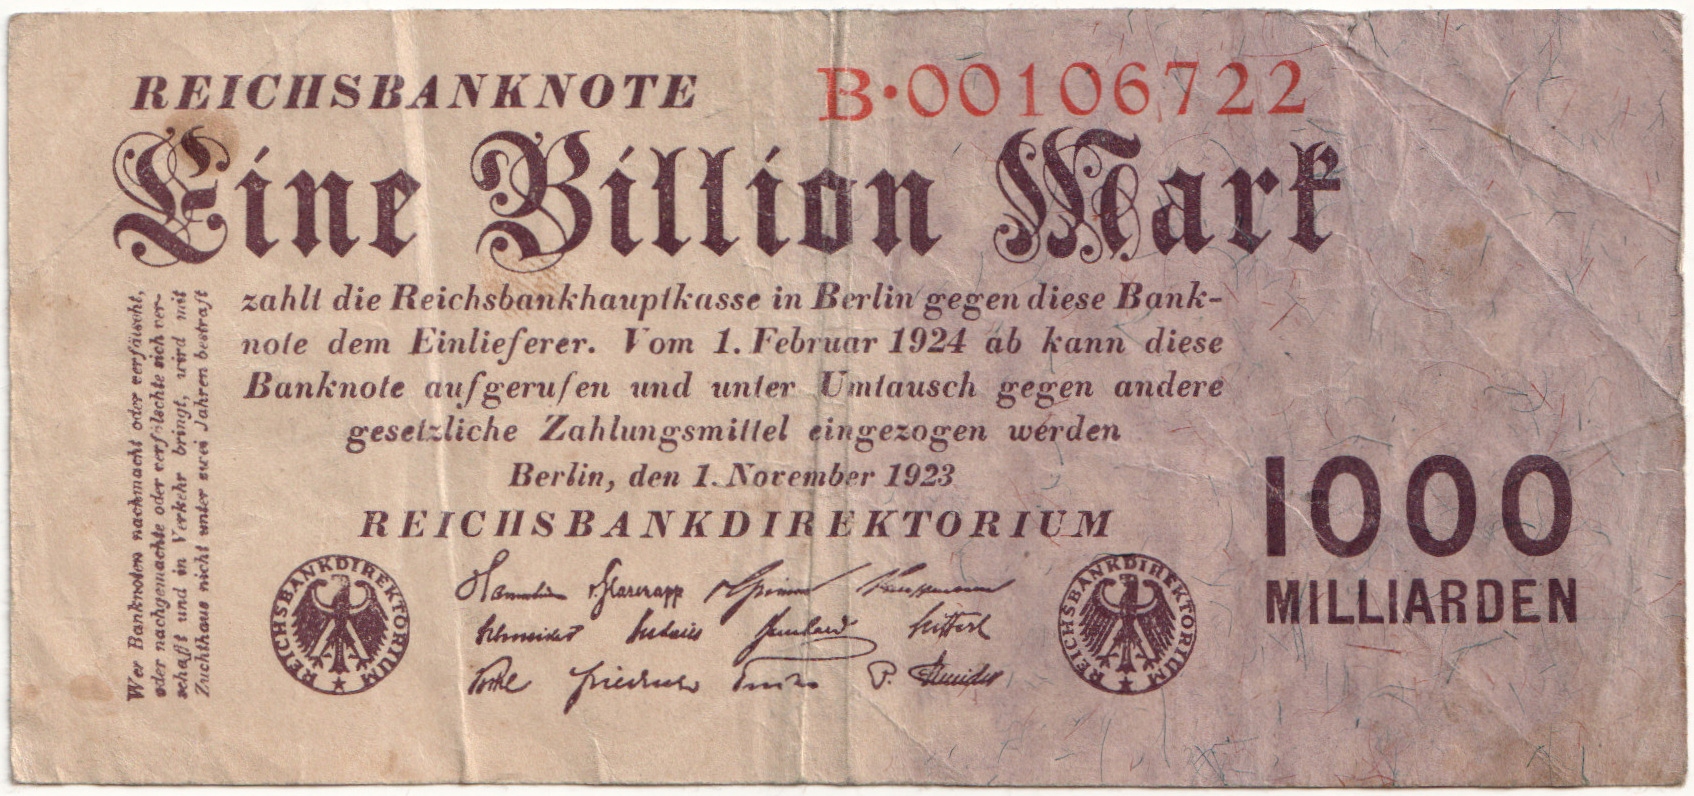 REICHSBANKNOTE
B·00106722
Eine Billion Mark
zahlt die Reichsbankhauptkasse in Berlin gegen diese Bank-
note dem Einlieferer. Vom 1. Februar 1924 ab kann diese
Banknote aufgerufen und unter Umtausch gegen andere
gesetzliche Zahlungsmittel eingezogen werden
Berlin, den 1. November 1923
REICHSBANKDIREKTORIUM
Wer Banknoten nachmacht oder verfälscht,
oder nachgemachte oder verfälschte sich ver-
schafft und in Verkehr bringt, wird mit
Zuchthaus nicht unter zwei Jahren bestraft
1000
MILLIARDEN
REICHSBANKDIREKTORIUM
REICHSBANKDIREKTORIUM
v. Glasenapp
Schneider
Friedrich
P. Schneider